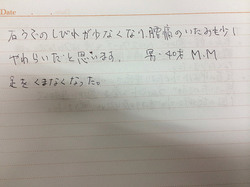 Date
右うでのしびれがゆなくなり、腰痛のいたみも少し
やわらいだと思います。 男・40才 M.M
足をくまなくなった。